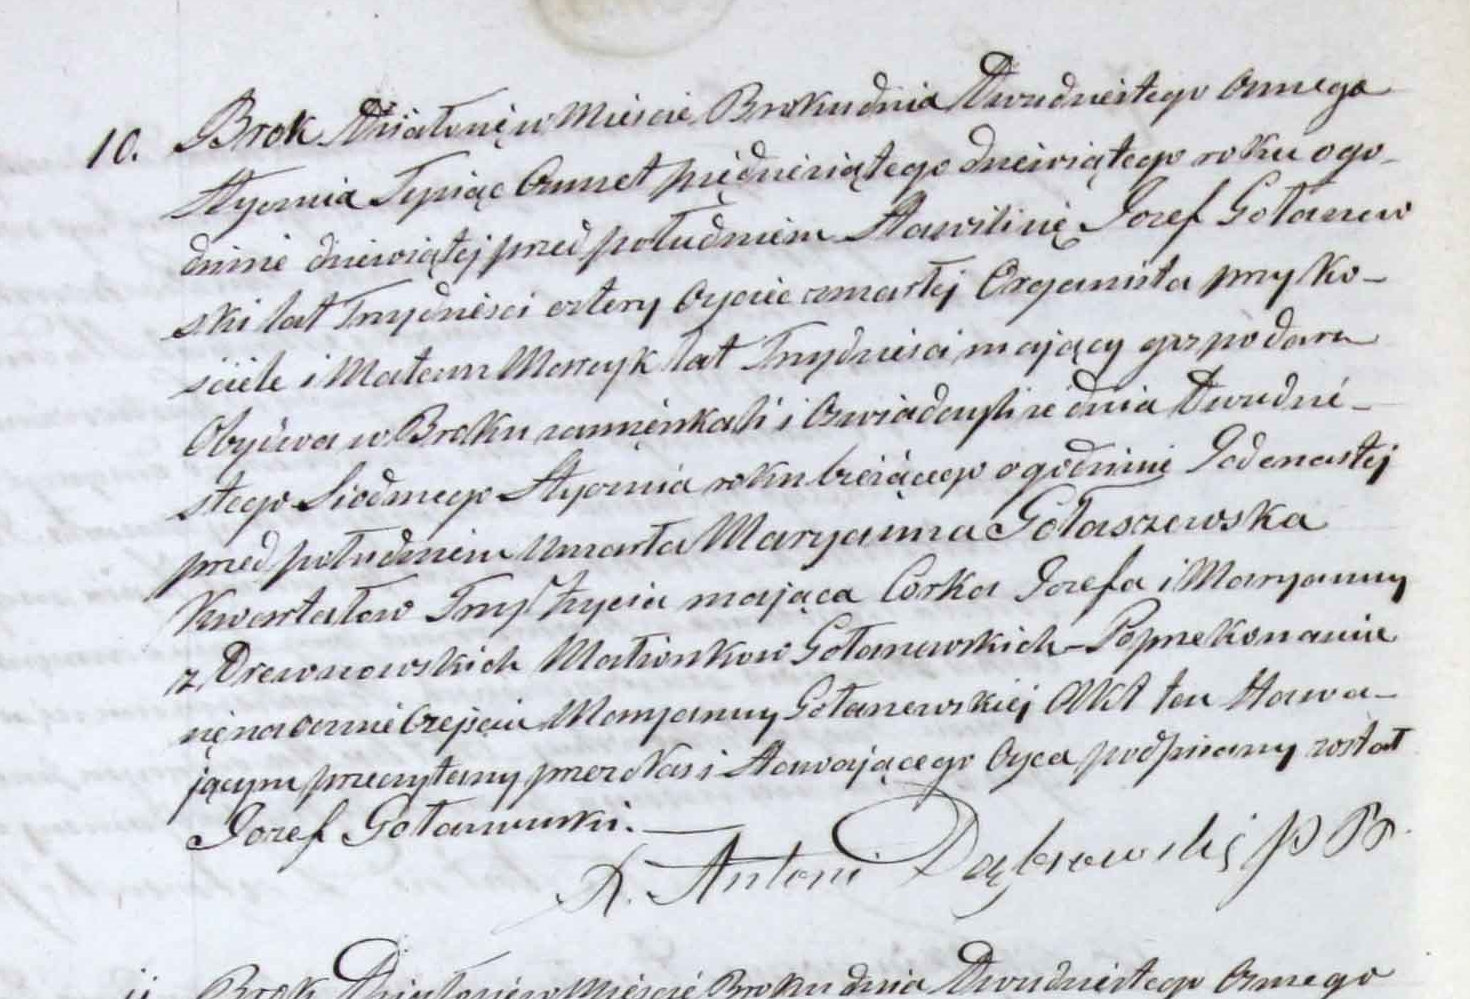 10. Brok Działo się w Mieście Broku dnia Dwudziestego Osmego
Stycznia Tysiąc Osmset piędziesiątego dziewiątego roku o go-
dzinie dziewiątej przed południem Stawili się Jozef Gołaszew
ski lat Trzydzieści cztery Oyciec zmarłej Organista przy ko-
ściele i Mateusz Marczyk lat Trzydzieści mający gospodarz
Obydwa w Broku zamięszkali i Oswiadczyli ze dnia Dwudzie-
stego Siodmego Stycznia roku bieżącego o godzinie Jedenastej
przed południem Umarła Maryanna Gołaszewska
Kwartałow Trzy życia mająca Corka Jozefa i Maryanny
z Drewnowskich Małżonkow Gołaszewskich – Po przekonaniu
się naocznie o zejściu Maryanny Gołaszewskiej Akt ten Stawa-
jącym przeczytany przez Nas i Stawającego Oyca podpisany został
Jozef Gołaszewski. —
X. Antoni Dąbrowski P B.
11. Brok Działo się w Mieście Broku dnia Dwudziestego Osmego